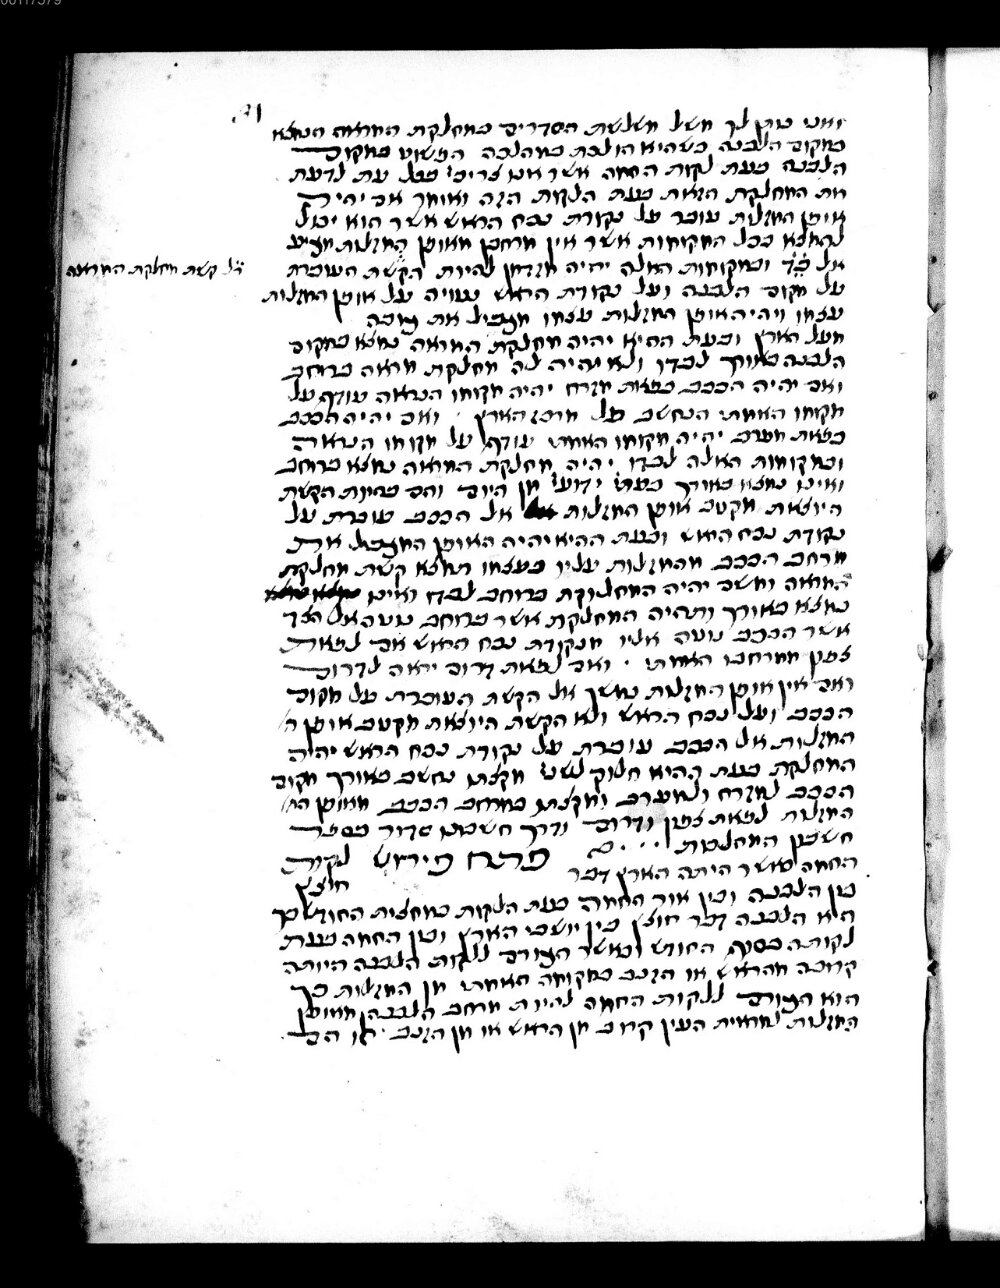 ואני נותן לך משל משלשת הסדרים במחלקת המראה הנמצא
במקום הלבנה כשהיא הולכת במהלכה המשוע במקום
הלבנה בעת לקות החמה אשר אנו צריכי׳ בכל עת לדעת
את המחלקת הזאת בעת הלקות הזה ואומר אם יהיה
אופן המזלות עובר על נקודת נכח הראש אשר הוא יכול
להמצא בכל המקומות אשר אין מרחבן מאופן המזלות מגיע
אל כ׳ד׳ ובמקומות האלה יהיה מזדמן להיות הקשת העוברת
על מקום הלבנה ועל נקודת הראש נטויה על אופן המזלות
עצמו ויהיה אופן המזלות עצמו מגביל את גובה
מעל הארץ ובעת ההיא יהיה מחלקת המראה נמצא במקום
הלבנה באורך לבדו ולא יהיה לה מחלקת מראה ברוחב
ואם יהיה הככב בפאת מזרח יהיה מקומו הנראה עודף על
מקומו האמתי הנחשב על מרכז הארץ ׳ ואם יהיה הככב
בפאת מערב יהיה מקומו האמתי עודף על מקומו הנראה
ובמקומות האלה לבדו יהיה מחלקת המראה נמצא ברוחב
ואינו נמצא באורך בעתי׳ ידועי׳ מן היום והם בהיות הקשת
היוצאת מקטב אופן המזלות אל הככב עוברת על
נקודת נכח הראש ובעת ההיא יהיה האופן המגביל את
מרחב הככב מהמזלות עליו בעצמו תמצא קשת מחלקת
המראה ומשם יהיה המחלוקת ברוחב לבדו ואינו
נמצא באורך ותהיה המחלקת אשר ברוחב נוטה אל הצד
אשר הככב נוטה אליו מנקודת נכח הראש אם לפאת
צפון ממרחבו האמתי ׳ ואם לפאת דרום יראה לדרום
ואם אין אופן המזלות נמשך אל הקשת העוברת על מקום
הככב ועל נכח הראש ולא הקשת היוצאת מקטב אופן ה
המזלות אל הככב עוברת על נקודת נכח הראש יהיה
המחלקת בעת ההיא חלוק לשני׳ מקצתו נחשב באורך מקום
הככב למזרח ולמערב ומקצתו במרחב הככב מאופן המ
המזלות לפאת צפון ודרום ודרך חשבונו סדור בספר
חשבון המהלכות פתח פירוש לקות
החמה כאשר היתה הארץ דבר
חוצץ
בין הלבנה ובין אור החמה בעת הלקות במחצית החודש כך
היא הלבנה דבר חוצץ בין יושבי הארץ ובין החמה בעת
לקותה בסוף החודש וכאשר הגורם ללקות הלבנה היותה
קרובה מהראש או הזנב במקומה האמתי מן המזלות כך
הוא הגורם ללקות החמה להיות מרחב הלבנה מאופן
המזלות למראית העין קרוב מן הראש או מן הזנב ׳ לו הם
על קשת מחלקת המראה